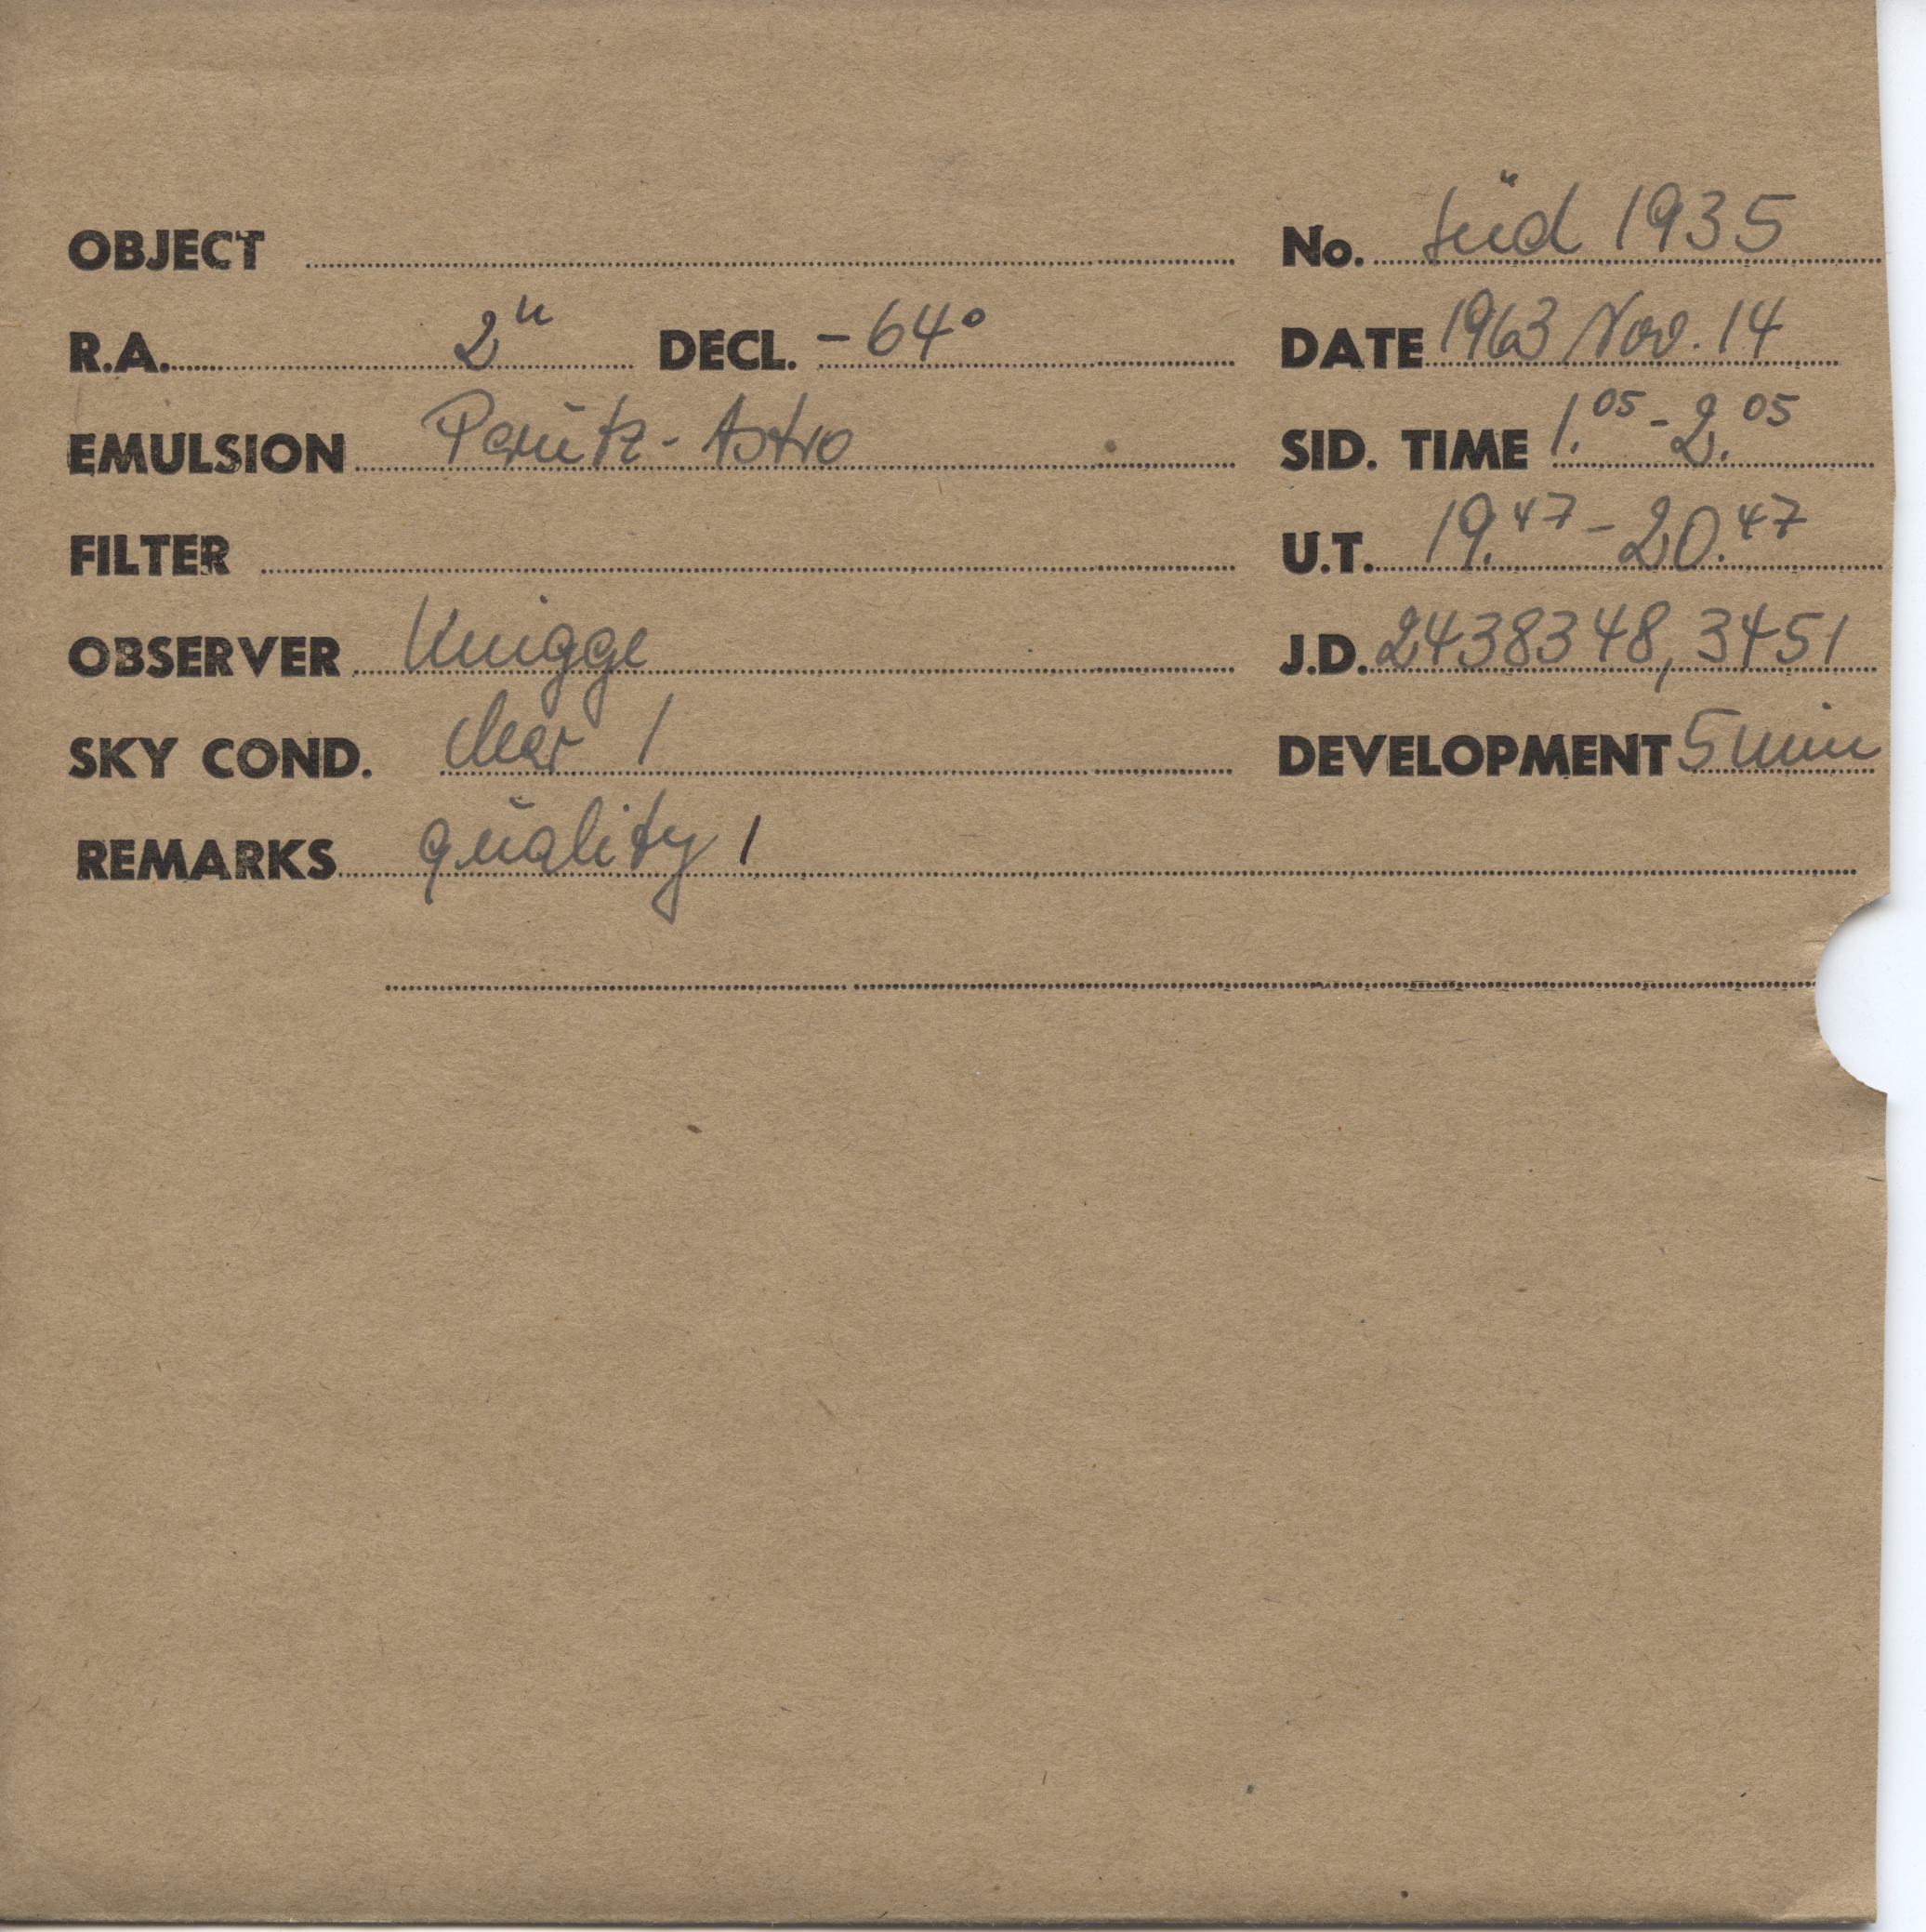 OBJECT No. Süd 1935
R.A. 2h DECL. -64° DATE 1963 Nov. 14
EMULSION Perutz-Astro SID. TIME 1.05-2.05
FILTER U.T. 19.47-20.47
OBSERVER Knigge J.D. 2438348,3451
SKY COND. clear 1 DEVELOPMENT 5 min
REMARKS quality 1